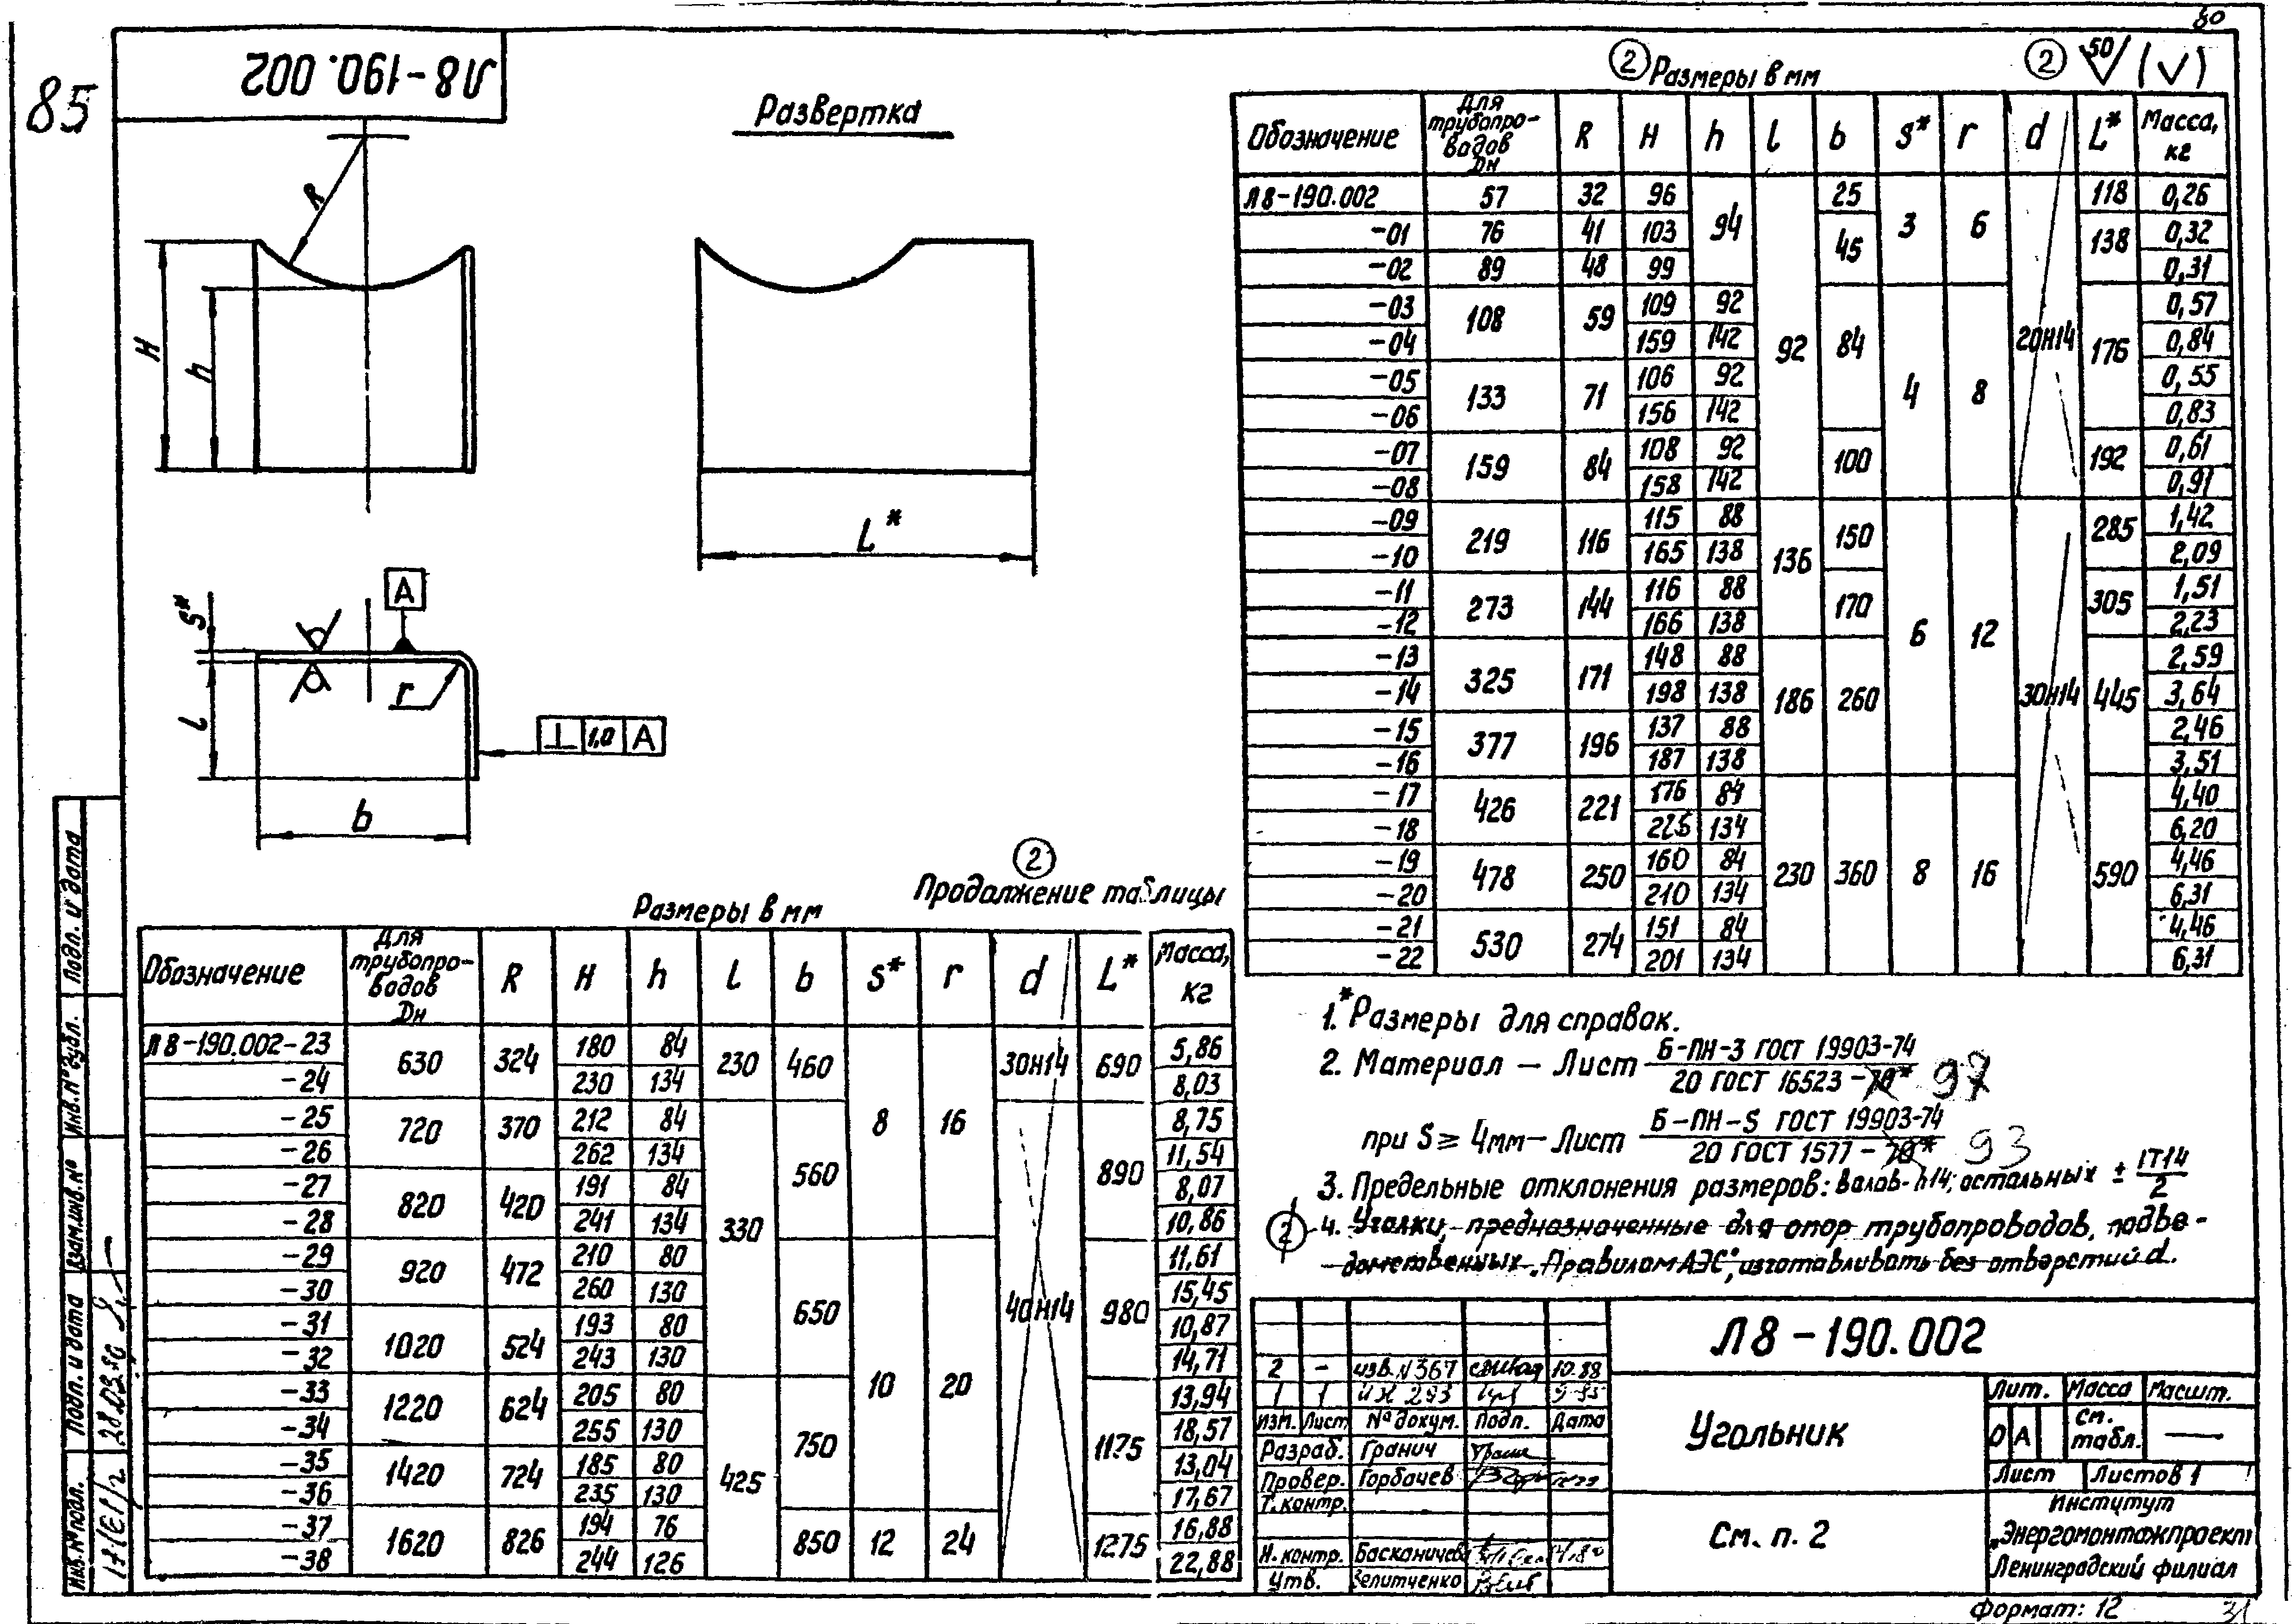 80
85
Л8-190.002
Развертка
R
H
h
L*
S*
A
r
l
⊥ 1,0 A
b
2 Размеры в мм
2 50 (√)
Обозначение Для трубопроводов Dн R H h l b s* r d L* Масса, кг
Л8-190.002 57 32 96 94 92 25 3 6 20H14 118 0,26
-01 76 41 103 45 138 0,32
-02 89 48 99 0,31
-03 108 59 109 92 84 4 8 176 0,57
-04 159 142 0,84
-05 133 71 106 92 0,55
-06 156 142 0,83
-07 159 84 108 92 100 192 0,61
-08 158 142 0,91
-09 219 116 115 88 136 150 6 12 30H14 285 1,42
-10 165 138 2,09
-11 273 144 116 88 170 305 1,51
-12 166 138 2,23
-13 325 171 148 88 186 260 445 2,59
-14 198 138 3,64
-15 377 196 137 88 2,46
-16 187 138 3,51
-17 426 221 176 84 230 360 8 16 590 4,40
-18 226 134 6,20
-19 478 250 160 84 4,46
-20 210 134 6,31
-21 530 274 151 84 4,46
-22 201 134 6,31
2
Размеры в мм Продолжение таблицы
Обозначение Для трубопроводов Dн R H h l b s* r d L* Масса, кг
Л8-190.002-23 630 324 180 84 230 460 8 16 30H14 690 5,86
-24 230 134 8,03
-25 720 370 212 84 330 560 40H14 890 8,75
-26 262 134 11,54
-27 820 420 191 84 8,07
-28 241 134 10,86
-29 920 472 210 80 650 10 20 980 11,61
-30 260 130 15,45
-31 1020 524 193 80 10,87
-32 243 130 14,71
-33 1220 624 205 80 425 750 1175 13,94
-34 255 130 18,57
-35 1420 724 185 80 13,04
-36 235 130 17,67
-37 1620 826 194 76 850 12 24 1275 16,88
-38 244 126 22,88
1.* Размеры для справок.
2. Материал — Лист Б-ПН-3 ГОСТ 19903-74
20 ГОСТ 16523-70* 97
при S ≥ 4мм — Лист Б-ПН-S ГОСТ 19903-74
20 ГОСТ 1577- 93
3. Предельные отклонения размеров: валов-h14; остальных ± IT14/2
2 4. Уголки, предназначенные для опор трубопроводов, подве-
домственных „Правилам АЭС", изготавливать без отверстий d.
Л8-190.002
2 - изв.N367 10.88
1 1 ИИ 293
Изм. Лист № докум. Подп. Дата
Разраб. Гранич
Провер. Горбачев
Т.контр.
Н.контр.
Утв. Велитченко
Угольник
См. п. 2
Лит. Масса Масшт.
О А см. табл. —
Лист Листов 1
Институт
„Энергомонтажпроект"
Ленинградский филиал
Формат: 12
31
Подп. и дата
Инв.№ дубл.
Взам.инв.№
Подп. и дата
28.03.80
Инв.№ подл.